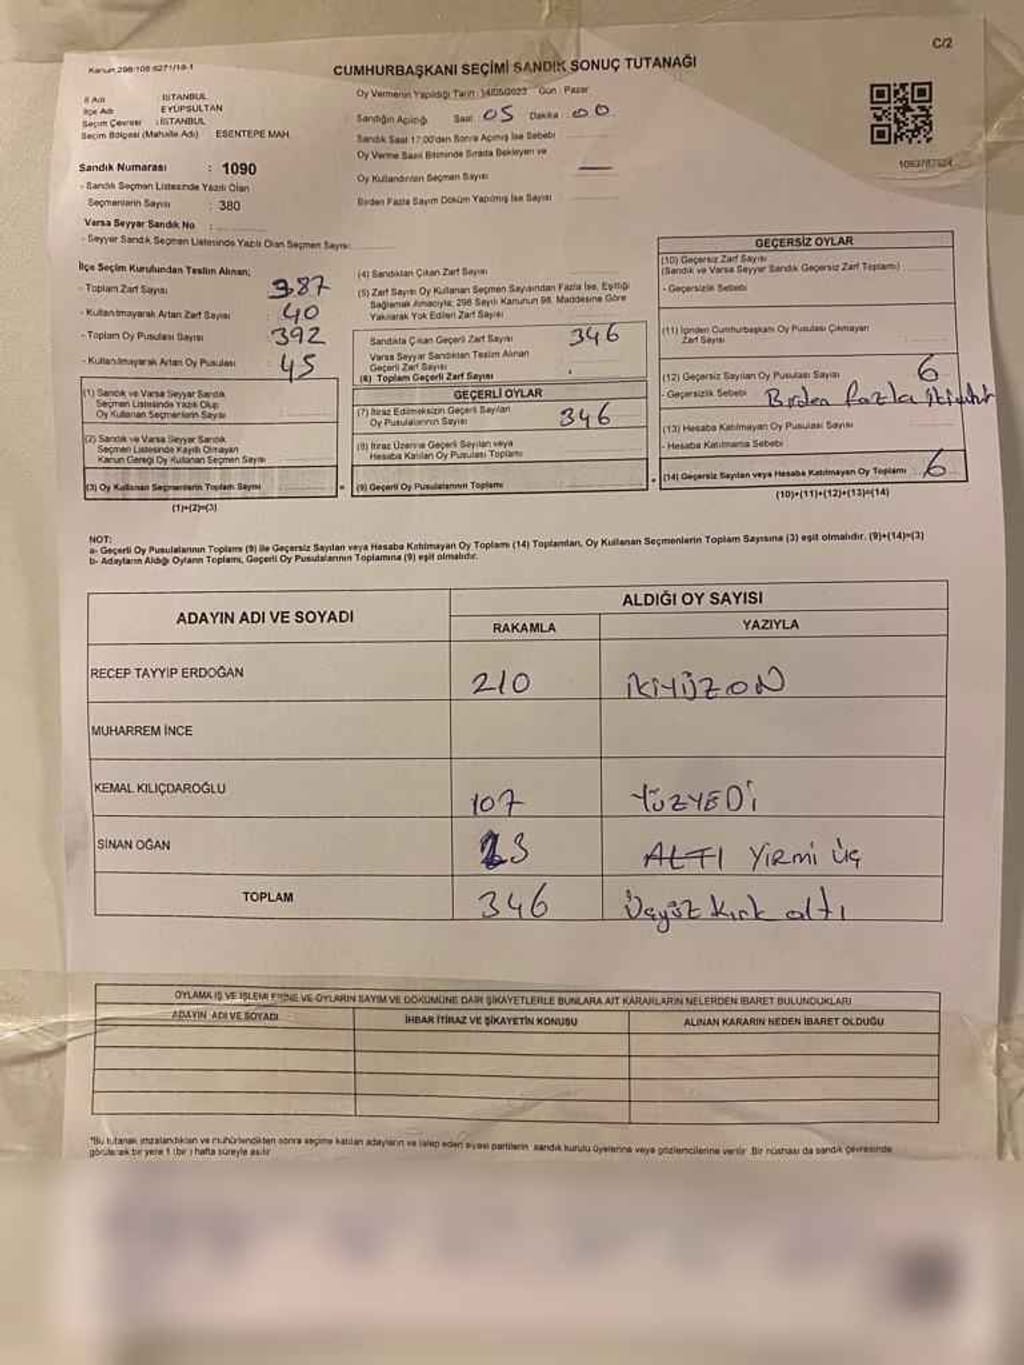 C/2
Kanun 298/108 6271/18-1
CUMHURBAŞKANI SEÇİMİ SANDIK SONUÇ TUTANAĞI
İl Adı : İSTANBUL
İlçe Adı : EYÜPSULTAN
Seçim Çevresi : İSTANBUL
Seçim Bölgesi (Mahalle Adı) : ESENTEPE MAH.
Sandık Numarası : 1090
- Sandık Seçmen Listesinde Yazılı Olan
Seçmenlerin Sayısı : 380
Varsa Seyyar Sandık No :
- Seyyar Sandık Seçmen Listesinde Yazılı Olan Seçmen Sayısı:
Oy Vermenin Yapıldığı Tarih: 14/05/2023 Gün: Pazar
Sandığın Açılışı Saat 05 Dakika 00
Sandık Saat 17.00'den Sonra Açılmış İse Sebebi
Oy Verme Saati Bitiminde Sırada Bekleyen ve
Oy Kullandırılan Seçmen Sayısı —
Birden Fazla Sayım Döküm Yapılmış İse Sayısı
İlçe Seçim Kurulundan Teslim Alınan;
- Toplam Zarf Sayısı 387
- Kullanılmayarak Artan Zarf Sayısı : 40
- Toplam Oy Pusulası Sayısı 392
- Kullanılmayarak Artan Oy Pusulası : 45
(1) Sandık ve Varsa Seyyar Sandık
Seçmen Listesinde Yazılı Olup
Oy Kullanan Seçmenlerin Sayısı
(2) Sandık ve Varsa Seyyar Sandık
Seçmen Listesinde Kayıtlı Olmayan
Kanun Gereği Oy Kullanan Seçmen Sayısı
(3) Oy Kullanan Seçmenlerin Toplam Sayısı
(1)+(2)=(3)
(4) Sandıktan Çıkan Zarf Sayısı
(5) Zarf Sayısı Oy Kullanan Seçmen Sayısından Fazla İse, Eşitliği
Sağlamak Amacıyla; 298 Sayılı Kanunun 98. Maddesine Göre
Yakılarak Yok Edilen Zarf Sayısı
Sandıkta Çıkan Geçerli Zarf Sayısı 346
Varsa Seyyar Sandıktan Teslim Alınan
Geçerli Zarf Sayısı
(6) Toplam Geçerli Zarf Sayısı
GEÇERLİ OYLAR
(7) İtiraz Edilmeksizin Geçerli Sayılan
Oy Pusulalarının Sayısı 346
(8) İtiraz Üzerine Geçerli Sayılan veya
Hesaba Katılan Oy Pusulası Toplamı
(9) Geçerli Oy Pusulalarının Toplamı
GEÇERSİZ OYLAR
(10) Geçersiz Zarf Sayısı
(Sandık ve Varsa Seyyar Sandık Geçersiz Zarf Toplamı)
- Geçersizlik Sebebi
(11) İçinden Cumhurbaşkanı Oy Pusulası Çıkmayan
Zarf Sayısı
(12) Geçersiz Sayılan Oy Pusulası Sayısı 6
- Geçersizlik Sebebi Birden fazla
(13) Hesaba Katılmayan Oy Pusulası Sayısı
- Hesaba Katılmama Sebebi
(14) Geçersiz Sayılan veya Hesaba Katılmayan Oy Toplamı 6
(10)+(11)+(12)+(13)=(14)
NOT:
a- Geçerli Oy Pusulalarının Toplamı (9) ile Geçersiz Sayılan veya Hesaba Katılmayan Oy Toplamı (14) Toplamları, Oy Kullanan Seçmenlerin Toplam Sayısına (3) eşit olmalıdır. (9)+(14)=(3)
b- Adayların Aldığı Oyların Toplamı, Geçerli Oy Pusulalarının Toplamına (9) eşit olmalıdır.
ADAYIN ADI VE SOYADI
ALDIĞI OY SAYISI
RAKAMLA YAZIYLA
RECEP TAYYİP ERDOĞAN 210 İKİYÜZON
MUHARREM İNCE
KEMAL KILIÇDAROĞLU 107 YÜZYEDİ
SİNAN OĞAN 23 ALTI YİRMİ ÜÇ
TOPLAM 346 Üçyüz kırk altı
OYLAMA İŞ VE İŞLEMLERİNE VE OYLARIN SAYIM VE DÖKÜMÜNE DAİR ŞİKAYETLERLE BUNLARA AİT KARARLARIN NELERDEN İBARET BULUNDUKLARI
ADAYIN ADI VE SOYADI İHBAR İTİRAZ VE ŞİKAYETİN KONUSU ALINAN KARARIN NEDEN İBARET OLDUĞU
*Bu tutanak imzalandıktan ve mühürlendikten sonra seçime katılan adayların ve talep eden siyasi partilerin sandık kurulu üyelerine veya gözlemcilerine verilir. Bir nüshası da sandık çevresinde
görülecek bir yere 1 (bir) hafta süreyle asılır.